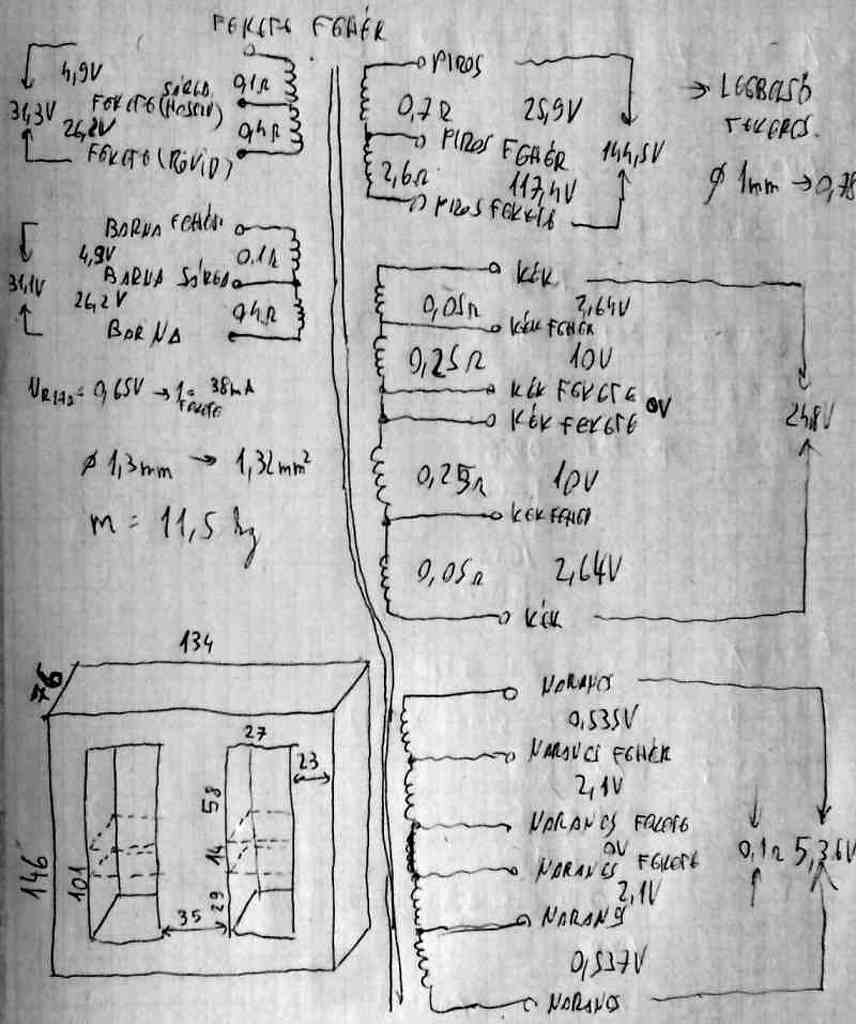 FEKETE FEHÉR
4,9V
SÁRGA
0,1Ω
31,3V
FEKETE (HOSSZÚ)
26,2V
0,4Ω
FEKETE (RÖVID)
BARNA FEHÉR
4,9V
0.1Ω
31,1V
BARNA SÁRGA
26,2V
0,4Ω
BARNA
= 0,65V → I = 38mA
FEKETE
φ 1,3mm → 1,32mm²
m = 11,5 kg
PIROS
0,7Ω 25,9V
PIROS FEHÉR
144,5V
2,6Ω 117,4V
PIROS FEKETE
→ LEGBELSŐ
TEKERCS.
φ 1mm → 0,78
KÉK
0,05Ω 2,64V
KÉK FEHÉR
0,25Ω 10V
KÉK FEKETE
0V
KÉK FEKETE
24,8V
0,25Ω 10V
KÉK FEHÉR
0,05Ω 2,64V
KÉK
134
76
27
23
58
14
146
101
29
35
NARANCS
0,535V
NARANCS FEHÉR
2,1V
NARANCS FEKETE
0V
NARANCS FEKETE
0,1Ω 5,36V
2,1V
NARANCS
0,537V
NARANCS